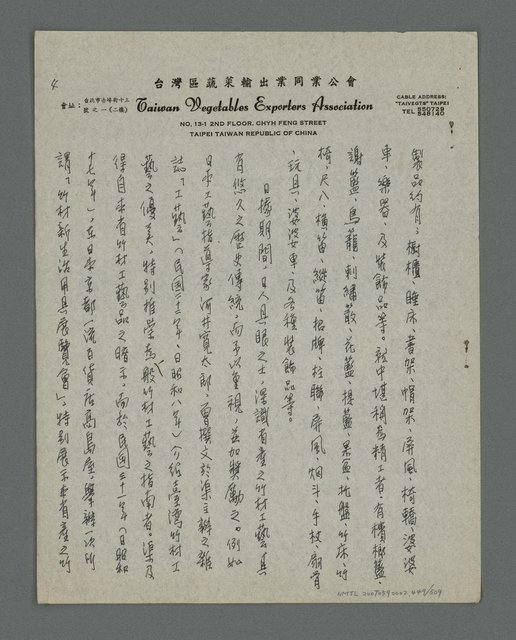 4
台灣區蔬菜輸出業同業公會
會址：台北市赤峰街十三號之一（二樓）
Taiwan Vegetables Exporters Association
NO, 13-1 2ND FLOOR. CHYH FENG STREET
TAIPEI TAIWAN REPUBLIC OF CHINA
CABLE ADDRESS:
"TAIVEGTS" TAIPEI
TEL 550729
548140
製品約有，櫥櫃、睡床、書架、帽架、屏風、椅轎、婆婆
車、樂器、及裝飾品等。就中堪稱為精工者，有檳榔籃、
謝籃、鳥籠、刺繡籃、花籃、提籃、果盒、地盤、竹床、竹
椅、尺八、橫笛、縱笛、招牌、柱聯、屏風、烟斗、手杖、扇骨
、玩具、婆婆車、及各種裝飾品等。
日據期間，日人具眼之士，深識省產之竹材工藝，具
有悠久之歷史傳統，而予以重視，並加獎勵之。例如
日本工藝指導家河井寬太郎，曾撰文於渠主辦之雜
誌「工藝」（民國二十二年、日昭和八年）介紹臺灣竹材工
藝之優美，特別推舉為一般竹材工藝之指南者。渠及
得自本省竹材工藝品之暗示，而於民國三十一年（日昭和
十七年），在日本京都一流百貨店高島屋，舉辦一次所
謂「竹材新生活用具展覽會」，特別展示本省產之竹
NMTL 20070590002, 449/509